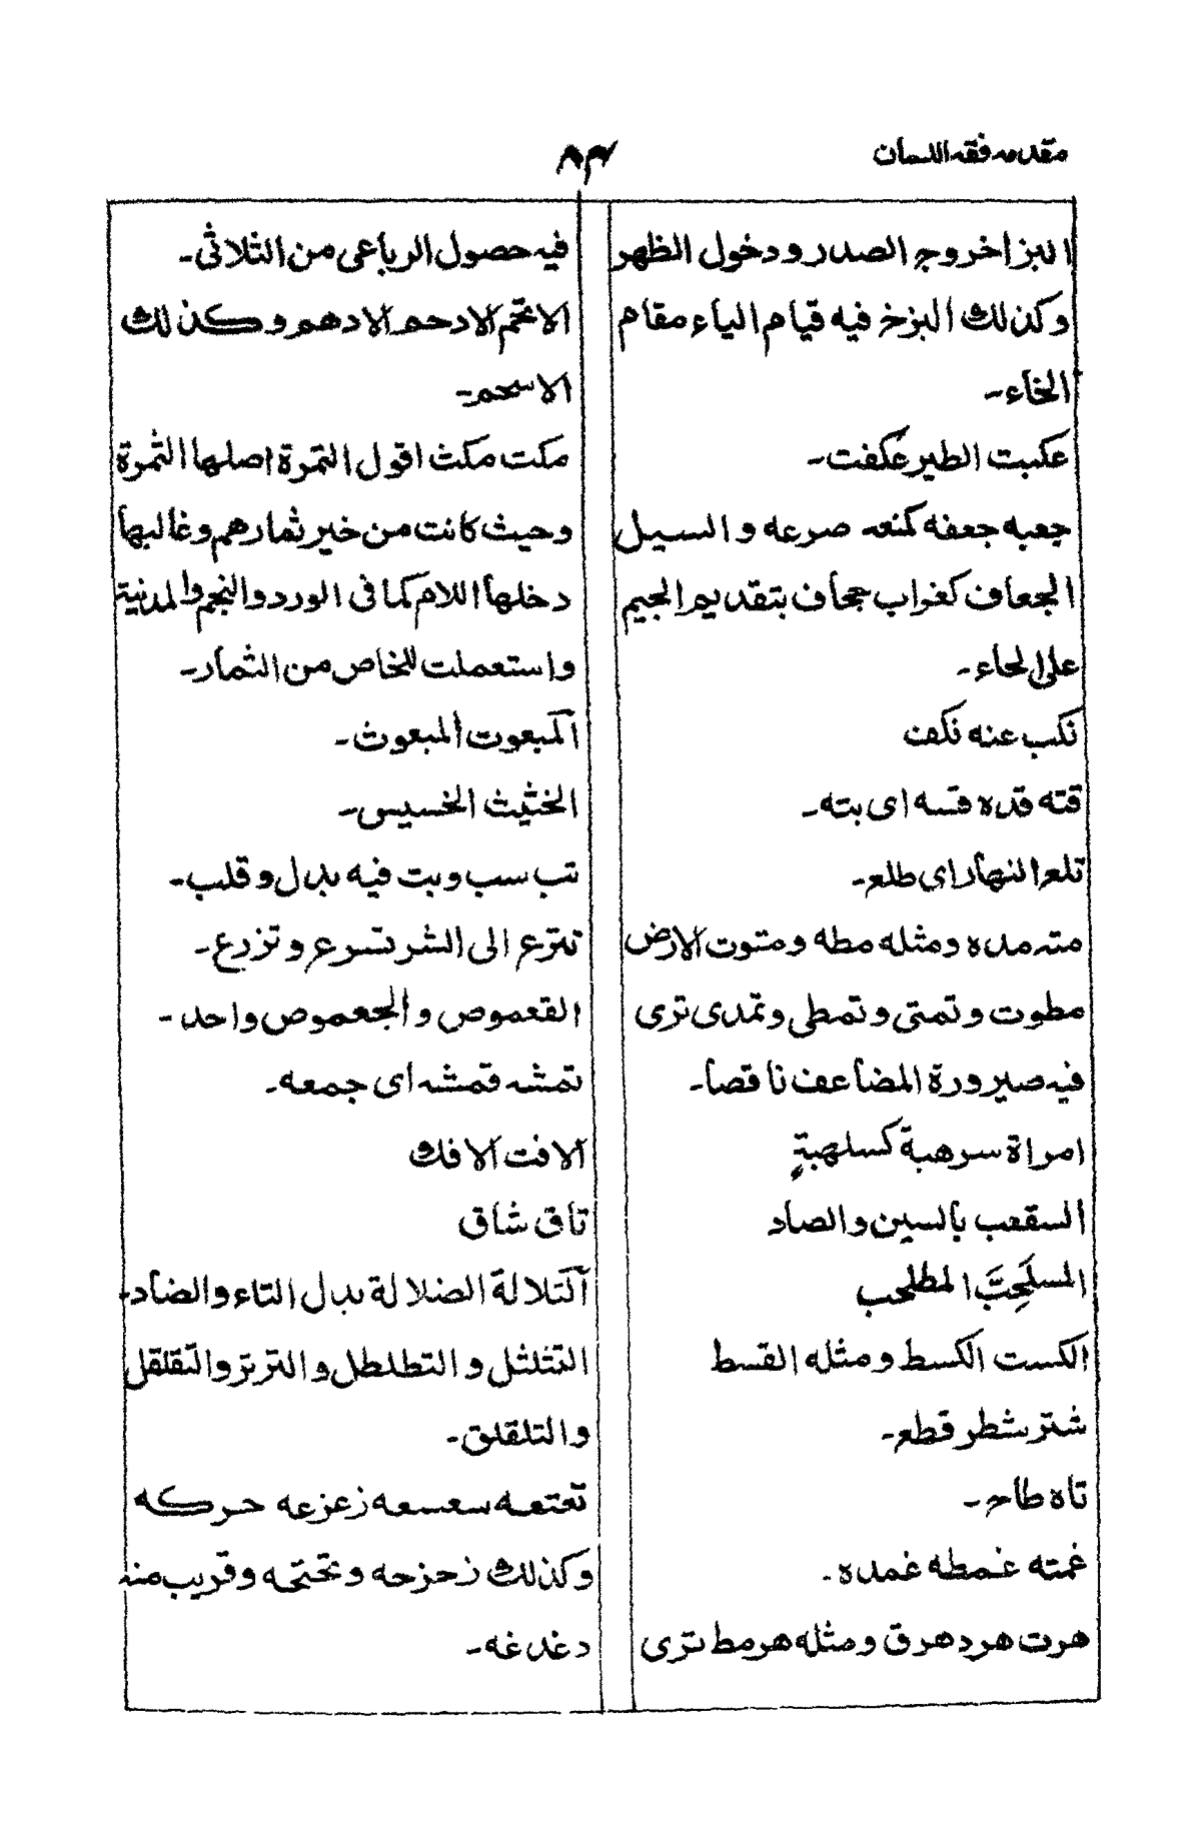 مقدمہ فقہ اللسان
۸۳
البزا خروج الصدر ودخول الظهر
وكذلك البزخ فيه قيام الياء مقام
الخاء۔
عكبت الطير عكفت۔
جعبه جعفه كمنعه صرعه والسيل
الجعاف كغراب جحاف بتقديم الجيم
على الحاء۔
نكب عنه نكف
قته قده قسه اى بته۔
تلع النهار اى طلع۔
مته مده ومثله مطه ومتوت الارض
مطوت وتمتى وتمطى وتمدى ترى
فيه صيرورة المضاعف ناقصا۔
امراة سرهبة كسلهبةٍ
السقعب بالسين والصاد
المسلَحِبَّ المطلحب
الكست الكسط ومثله القسط
شتر شطر قطع۔
تاه طاح۔
غمته غمطه غمده۔
هرت هرد هرق ومثله هرمط ترى
فيه حصول الرباعى من الثلاثى۔
الاتحم الادحم الادهم وكذلك
الاسحم۔
مكت مكث اقول التمرة اصلها الثمرة
وحيث كانت من خير ثمارهم وغالبها
دخلها اللام كما فى الورد والنجم والمدنية
واستعملت للخاص من الثمار۔
المبعوت المبعوث۔
الختيث الخسيس۔
تب سب وبت فيه بدل وقلب۔
تترع الى الشر تسرع وتزرع۔
القعموص والجعموص واحد۔
تمشه قمشه اى جمعه۔
الافت الافك
تاق شاق
التلالة الضلالة بدل التاء والضاد۔
التتلثل والتطلطل والترتر والتقلقل
والتلقلق۔
تعتعه سعسعه زعزعه حركه
وكذلك زحزحه وتحتحه وقريب منه
دغدغه۔